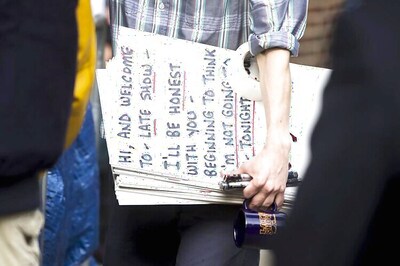 HI, AND WELCOME
TO - LATE SHOW -
I'LL BE HONEST
WITH YOU -
BEGINNING TO THINK
I'M NOT GOING
- TONIGHT